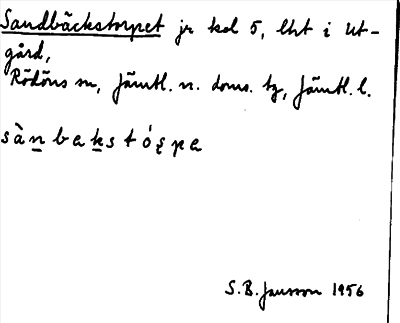 Sandbäckstorpet jr kal 5, lht i Ut-
gård,
Rödöns sn, Jämtl. n. doms. tg, Jämtl. l.
sànbakstórpa
S.B. Jansson 1956